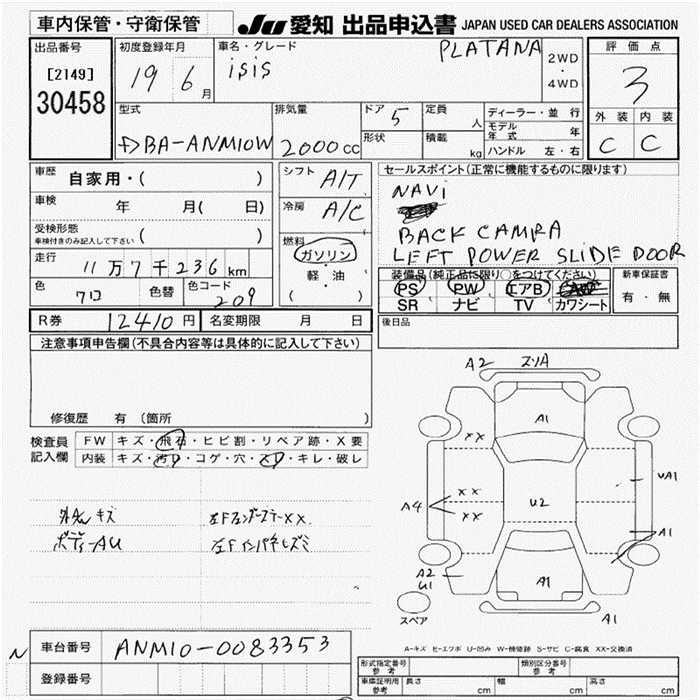 車内保管・守衛保管 JU 愛知 出品申込書 JAPAN USED CAR DEALERS ASSOCIATION
出品番号 [2149] 30458
初度登録年月 19 6 月
車名・グレード isis PLATANA
2WD・4WD
評価点 3
外装 内装
C C
型式 DBA-ANM10W
排気量 2000 CC
ドア 5
形状
定員 人
積載 kg
ディーラー・並行
モデル年式 年
ハンドル 左・右
車歴 自家用・( )
車検 年 月( 日)
受検形態 ( )
車検付きのみ記入して下さい
走行 11万7千236 km
色 クロ 色替 色コード 209
シフト A/T
冷房 A/C
燃料 ガソリン
軽・油
( )
R券 12410 円 名変期限 月 日
セールスポイント(正常に機能するものに限ります)
NAVi
BACK CAMRA
LEFT POWER SLIDE DOOR
装備品(純正品に限り○をつけてください)
PS PW エアB
SR ナビ TV カワシート
新車保証書
有・無
後日品
注意事項申告欄(不具合内容等は具体的に記入して下さい)
修復歴 有(箇所
検査員記入欄
FW キズ・飛石・ヒビ割・リペア跡・X要
内装 キズ・汚れ・コゲ・穴・スレ・キレ・破レ
外装キズ
ボディーAU
A2 スリA
A1
XX
XX
XX
A4
U2
UA1
A1
A2
U1
A1
A1
スペア
A-キズ E-エクボ U-凹み W-補修跡 S-サビ C-腐食 XX-交換済
N
車台番号 ANM10-0083353
登録番号
形式指定番号 参考
類別区分番号 参考
車庫証明用 参考 長さ cm 幅 cm 高さ cm